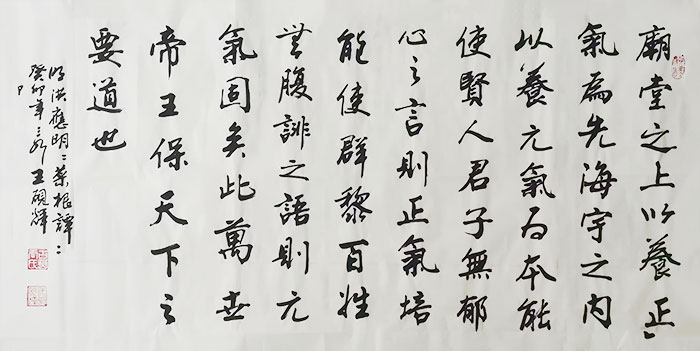 廟堂之上以養正
氣為先海宇之内
以養元氣为本能
使賢人君子無郁
心之言則正氣培
能使群黎百姓
無腹誹之語則元
氣固矣此萬世
帝王保天下之
要道也
明洪應明菜根譚
癸卯年 王硯輝